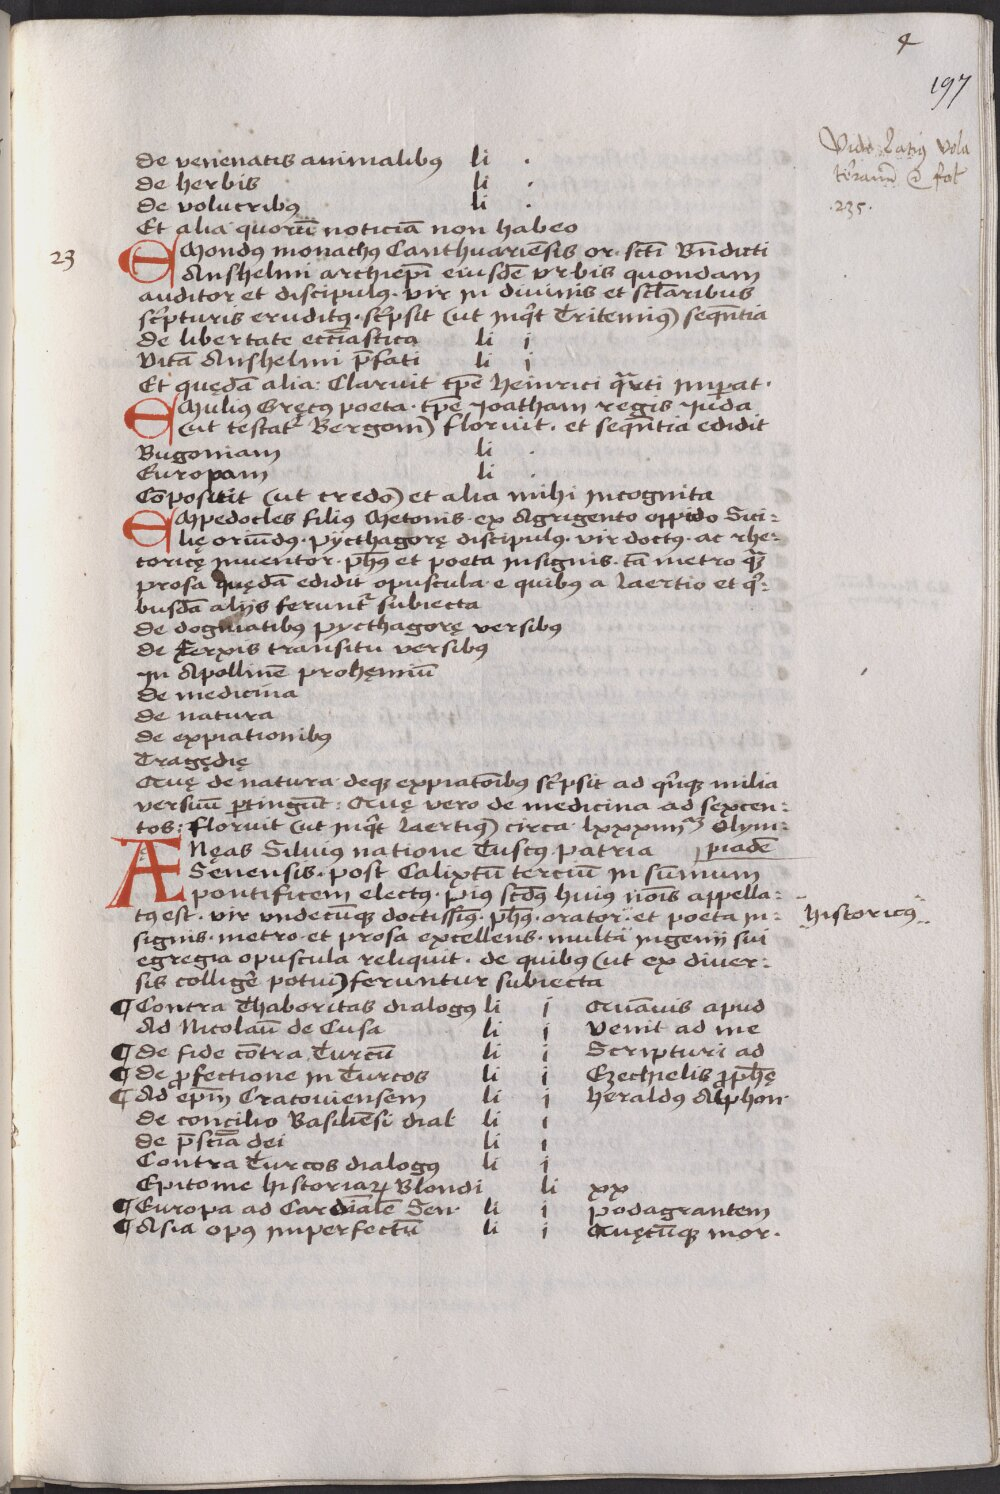 4
197
Vide latius vola
terranū
fol
.235.
De venenatis animalibus li .
De herbis li .
De volucribus li .
Et alia quorū noticiā non habeo
23
EMondus monachus Canthuariēsis or. scti Bn̄dicti
Anshelmi archiepī eiusdē vrbis quondam
auditor et discipulus. vir in divinis et sclaribus
scpturis eruditus. scpsit (ut inqt Tritemius) seqn̄tia
De libertate eccīastica li j
Vitā Anshelmi p̄fati li j
Et quędā alia: Claruit tpē Heinrici qrti impat.
EMulius Gręcus poeta. tpē Joatham regis Juda
(ut testat Bergom̄) floruit. et seqn̄tia edidit
Bugoniam li .
Europam li .
Cōposuit (ut credo) et alia mihi incognita
EMpedocles filius Metonis. ex Agrigento oppido Sici:
lię oriūdus. pycthagorę discipulus. vir doctus. ac rhe:
toricę inventor. phūs et poeta insignis. tā metro qꝫ
prosa quędā edidit opuscula e quibus a Laertio et q:
busdā alijs ferunt subiecta
De dogmatibus pycthagorę versibus
De Xerxis transitu versibus
In Apollinē prohęmiū
De medicina
De natura
De expiationibus
Tragędię
Quę de natura deqꝫ expiatōibus scpsit ad qnqꝫ milia
versuū ptingūt: Quę vero de medicina ad sexcen:
tos: floruit (ut inqt Laertius) circa lxxxiiij Olym:
piadē
ÆNęas Silvius natione Tuscus patria
Senensis. post Calixtū terciū in sūmum
pontificem electus. Pius scds huius nois appella:
tus est. vir vndecūqꝫ doctissius. phūs. orator. et poeta in:
historicus
signis. metro et prosa excellens. multa ingenij sui
egregia opuscula reliquit. de quibus (ut ex diver:
sis colligē potui) feruntur subiecta
¶ Contra Thaboritas dialogus li j Quāuis apud
Ad Nicolaū de Cusa li j Venit ad me
¶ De fide cōtra Turcū li j Scripturi ad
¶ De pfectione in Turcos li j Ezechielis pphę
¶ Ad epm̄ Cracouiensem li j Heraldus Alphon
De concilio Basiliēsi dial li j
De p̄sciā dei li j
Contra Turcos dialogus li j
Epitome historiaꝝ Blondi li xx
¶ Europa ad Cardīalē Sen. li j Podagrantem
¶ Asia opus imperfectū li j Quęcūqꝫ mor.